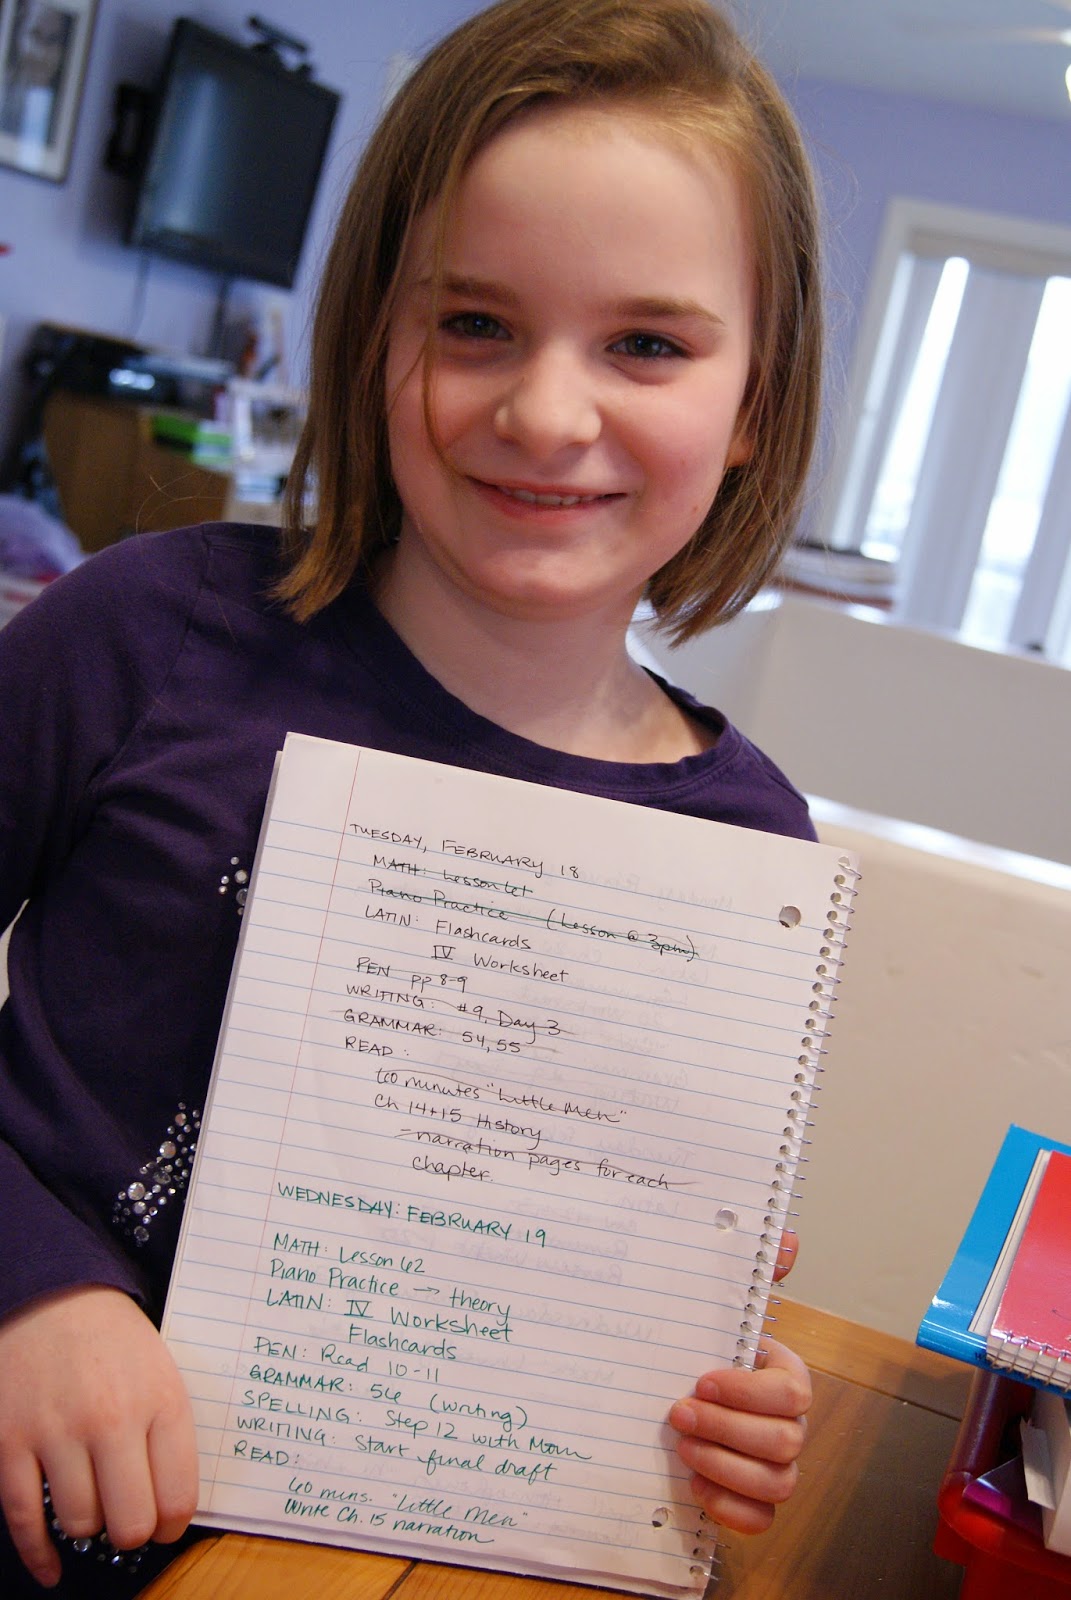 TUESDAY, FEBRUARY 18
MATH: Lesson 61
Piano Practice (Lesson @ 3pm)
LATIN: Flashcards
IV Worksheet
PEN pp 8-9
WRITING: #9, Day 3
GRAMMAR: 54, 55
READ:
60 minutes "Little Men"
Ch 14+15 History
-narration pages for each
chapter.
WEDNESDAY: FEBRUARY 19
MATH: Lesson 62
Piano Practice → theory
LATIN: IV Worksheet
Flashcards
PEN: Read 10-11
GRAMMAR: 56 (writing)
SPELLING: Step 12 with Mom
WRITING: Start final draft
READ:
60 mins. "Little Men"
Write Ch. 15 narration